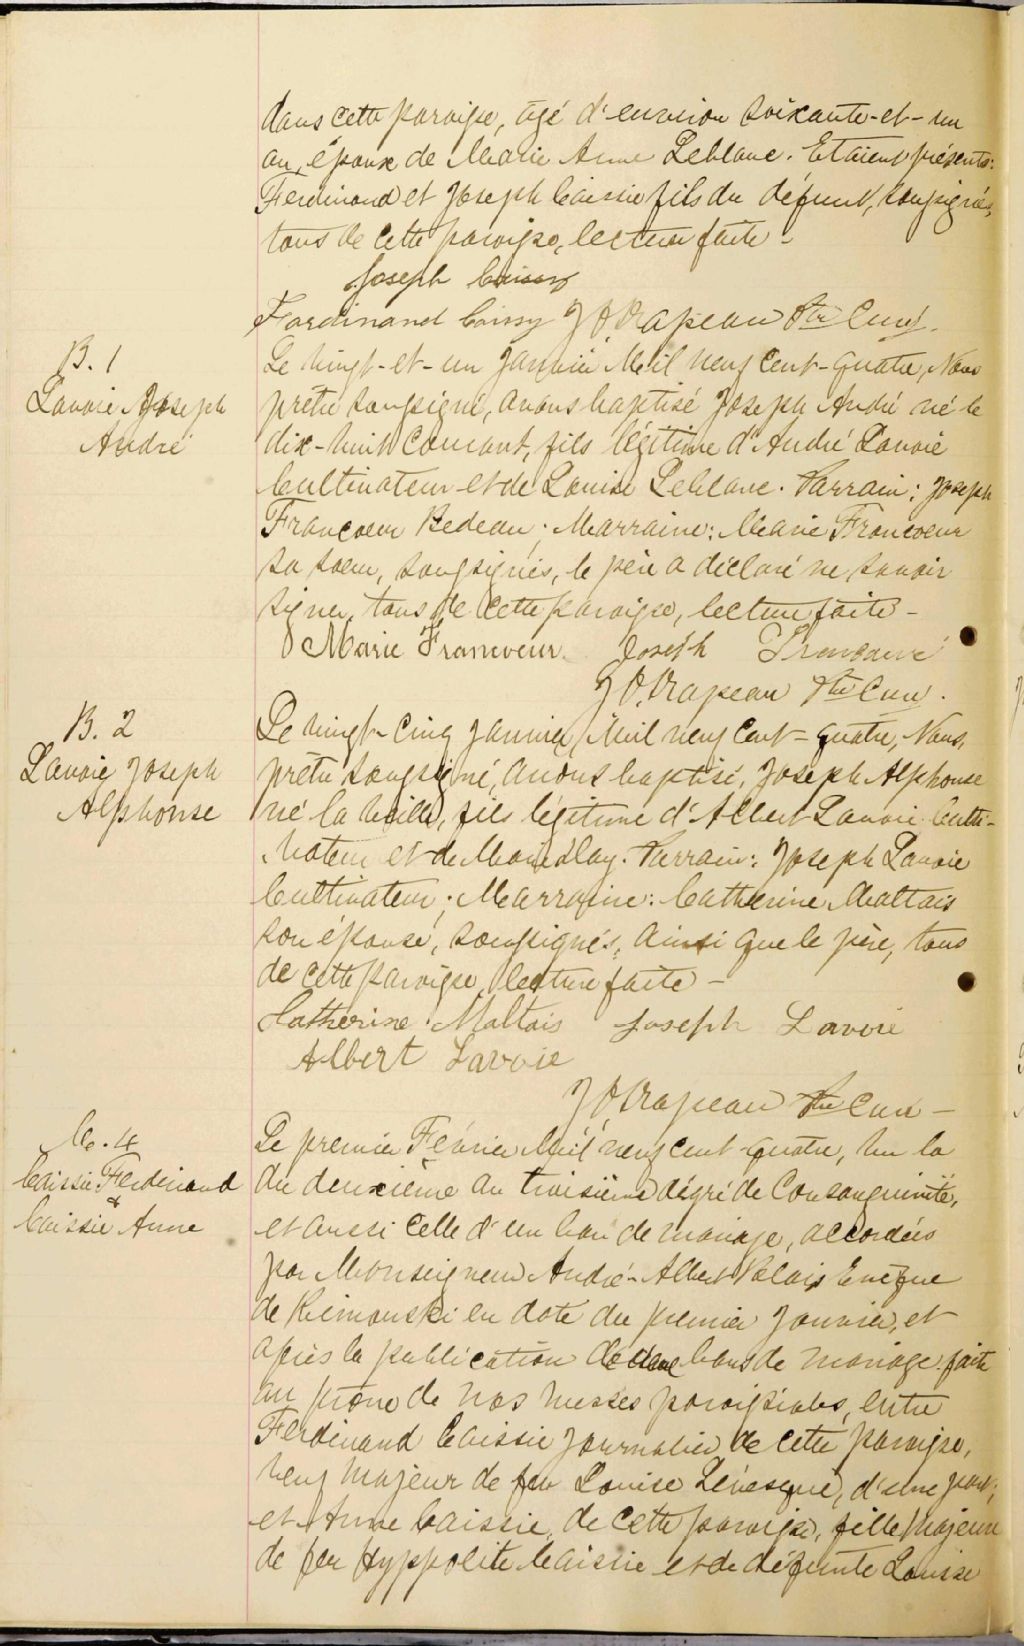 dans cette paroisse, agé d'environ soixante-et-un
an, époux de Marie Anne Leblanc. Etaient présents:
Ferdinand et Joseph Caissie fils du défunt, soussignés,
tous de cette paroisse, lecture faite -
Joseph Caissy
Ferdinand Caissy J O Drapeau Ptre Curé.
B. 1
Lavoie Joseph
André
Le vingt-et-un Janvier Mil neuf cent-quatre, Nous
prêtre soussigné, avons baptisé Joseph André né le
dix-huit Courant, fils légitime d'André Lavoie
Cultivateur et de Louise Leblanc. Parrain: Joseph
Francoeur Bedeau; Marraine: Marie Francoeur
sa soeur, soussignés, le père a déclaré ne savoir
signer, tous de cette paroisse, lecture faite -
Marie Francoeur Joseph Francoeur
J O. Drapeau Ptre Curé.
B. 2
Lavoie Joseph
Alphonse
Le vingt-cinq Janvier Mil neuf cent-quatre, Nous,
prêtre soussigné, avons baptisé, Joseph Alphonse
né la veille, fils légitime d'Albert Lavoie Culti-
vateur et de Marie Parrain: Joseph Lavoie
Cultivateur; Marraine: Catherine Maltais
son épouse, soussignés, ainsi que le père, tous
de cette paroisse, lecture faite -
Catherine Maltais Joseph Lavoie
Albert Lavoie
J O Drapeau Ptre Curé -
M. 4
Caissie Ferdinand
&
Caissie Anne
Le premier Février Mil neuf cent-quatre, Vu la
du deuxième au troisième dégré de Consanguinité,
et aussi celle d'un ban de mariage, accordées
par Monseigneur André-Albert Blais Evêque
de Rimouski en date du premier Janvier, et
après la publication de deux bans de mariage faite
au prône de nos messes paroissiales, entre
Ferdinand Caissie Journalier de cette paroisse,
veuf majeur de feu Louise Lévesque, d'une part;
et Anne Caissie, de cette paroisse, fille Majeure
de feu Hyppolite Caissie et de défunte Louise